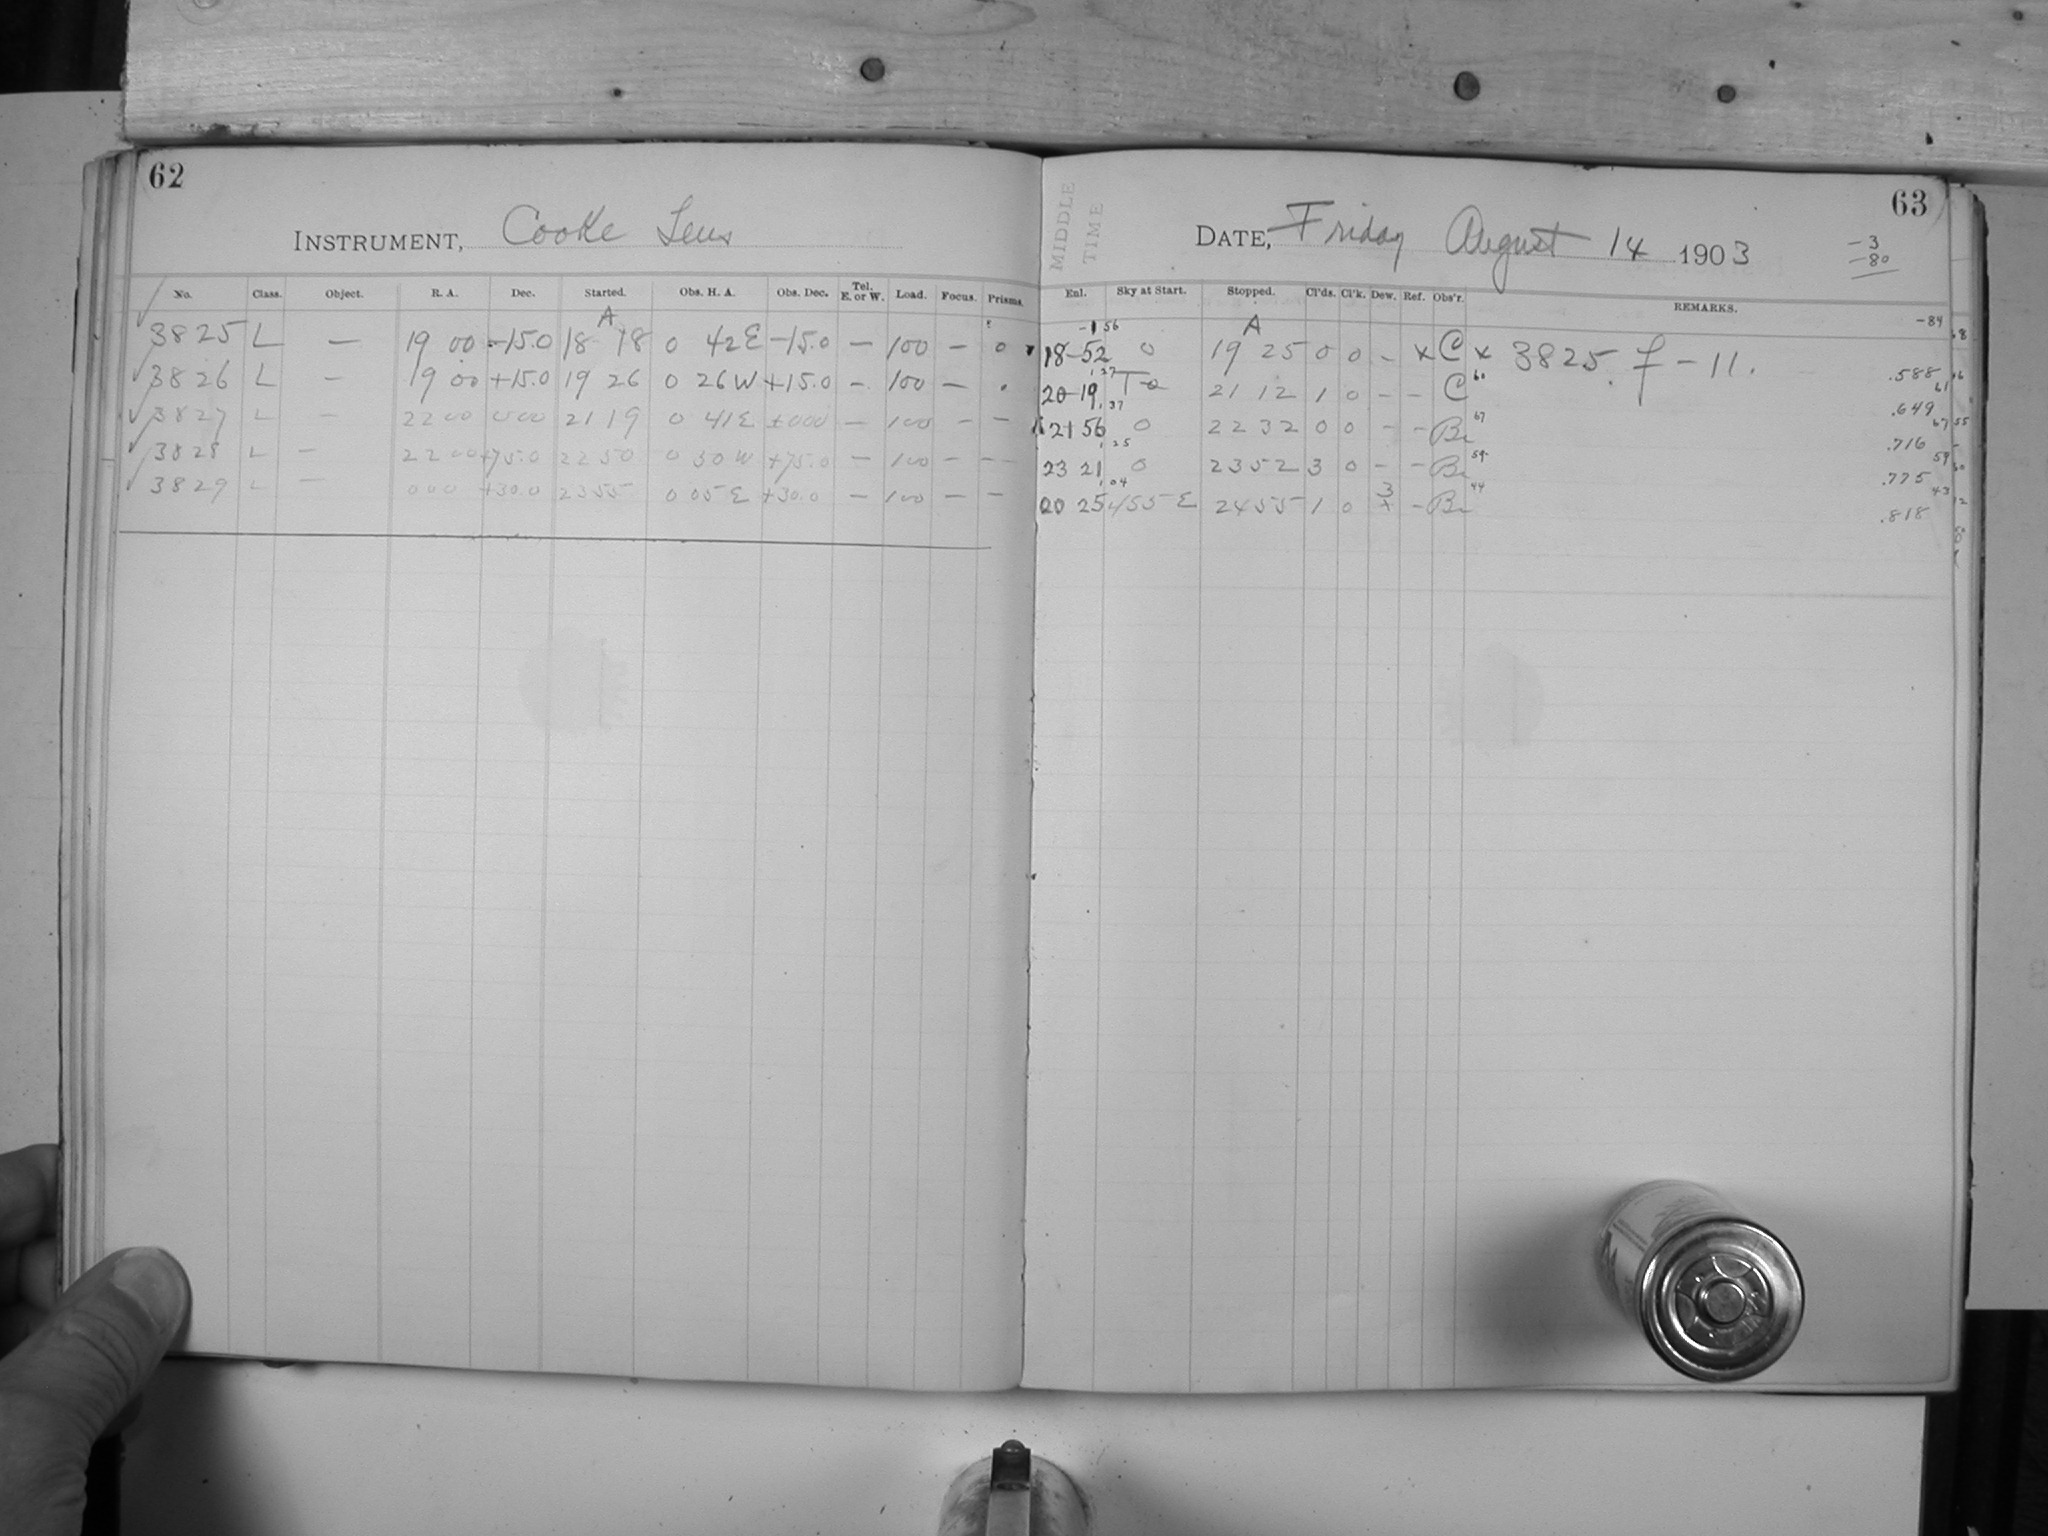 62
INSTRUMENT, Cooke Lens
No. Class. Object. R. A. Dec. Started. Obs. H. A. Obs. Dec. Tel. E. or W. Load. Focus. Prisms.
A
3825 L — 19 00 -15.0 18 18 0 42 E -15.0 — 100 — 0
3826 L — 19 00 +15.0 19 26 0 26 W +15.0 — 100 —
3827 L — 22 00 000 21 19 0 41 E +000 — 100 — —
3828 L — 22 00 +75.0 22 50 0 30 W +75.0 — 100 — —
3829 L — 0 00 +30.0 23 55 0 05 E +30.0 — 100 — —
63
MIDDLE TIME
DATE, Friday August 14 1903
-3
-80
Enl. Sky at Start. Stopped. Cl'ds. Cl'k. Dew. Ref. Obs'r. REMARKS.
-84
56 A
18-52 0 19 25 0 0 — x C x 3825 f - 11. .588
20-19 21 12 1 0 — — C 60 .649 61
21 56 0 22 32 0 0 — — Br 67 .716 67
23 21 0 23 52 3 0 — — Br 59 .775 59
00 25 455 E 24 55 1 0 — Br 44 .818 43